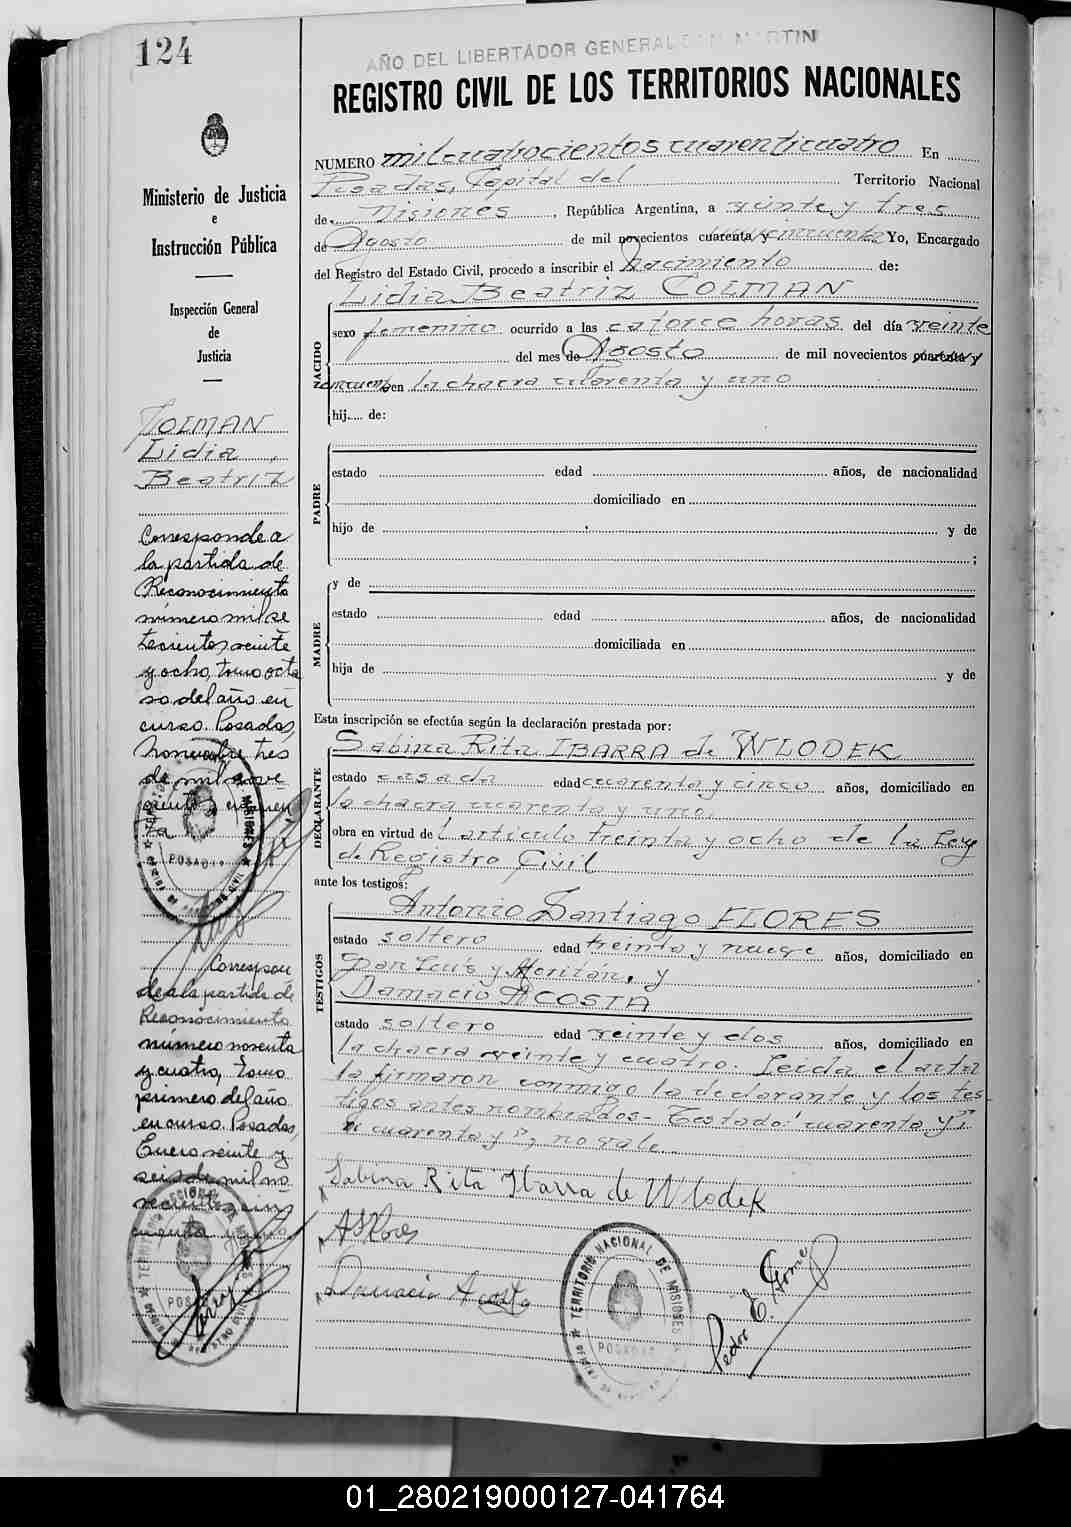 124
AÑO DEL LIBERTADOR GENERAL SAN MARTIN
REGISTRO CIVIL DE LOS TERRITORIOS NACIONALES
Ministerio de Justicia
e
Instrucción Pública
Inspección General
de
Justicia
COLMAN
Lidia
Beatriz
Corresponde a
la partida de
Reconocimiento
número mil se
tecientos veinte
y ocho, tomo octa
vo del año en
curso. Posadas,
Noviembre tres
de mil nove
cientos cincuen
ta
POSADAS
Correspon
de a la partida de
Reconocimiento
número noventa
y cuatro, tomo
primero del año
en curso. Posadas,
Enero veinte y
seis de mil no
vecientos cin
cuenta y uno.
NUMERO mil cuatrocientos cuarenticuatro En
Posadas, Capital del Territorio Nacional
de Misiones, República Argentina, a veinte y tres
de Agosto de mil novecientos cuarenta y cincuenta Yo, Encargado
del Registro del Estado Civil, procedo a inscribir el nacimiento de:
NACIDO
Lidia Beatriz COLMAN
sexo femenino ocurrido a las catorce horas del día veinte
del mes de Agosto de mil novecientos cuarenta y
cincuenta en la chacra cuarenta y uno
hij.... de:
PADRE
estado edad años, de nacionalidad
domiciliado en
hijo de y de
;
MADRE
y de
estado edad años, de nacionalidad
domiciliada en
hija de y de
Esta inscripción se efectúa según la declaración prestada por:
DECLARANTE
Sabina Rita IBARRA de WLODEK
estado casada edad cuarenta y cinco años, domiciliado en
la chacra cuarenta y uno.
obra en virtud del artículo treinta y ocho de la Ley
de Registro Civil
ante los testigos:
TESTIGOS
Antonio Santiago FLORES
estado soltero edad treinta y nueve años, domiciliado en
San Luis y Moritán, y
Damacio ACOSTA
estado soltero edad veinte y dos años, domiciliado en
la chacra veinte y cuatro. Leída el acta
la firmaron conmigo la declarante y los tes-
tigos antes nombrados- Testado: "cuarenta y";
"cuarenta y", no vale.
Sabina Rita Ibarra de Wlodek
ASFlores
Damacio Acosta
TERRITORIO NACIONAL DE MISIONES
POSADAS
Pedro E. Gomez
01_280219000127-041764